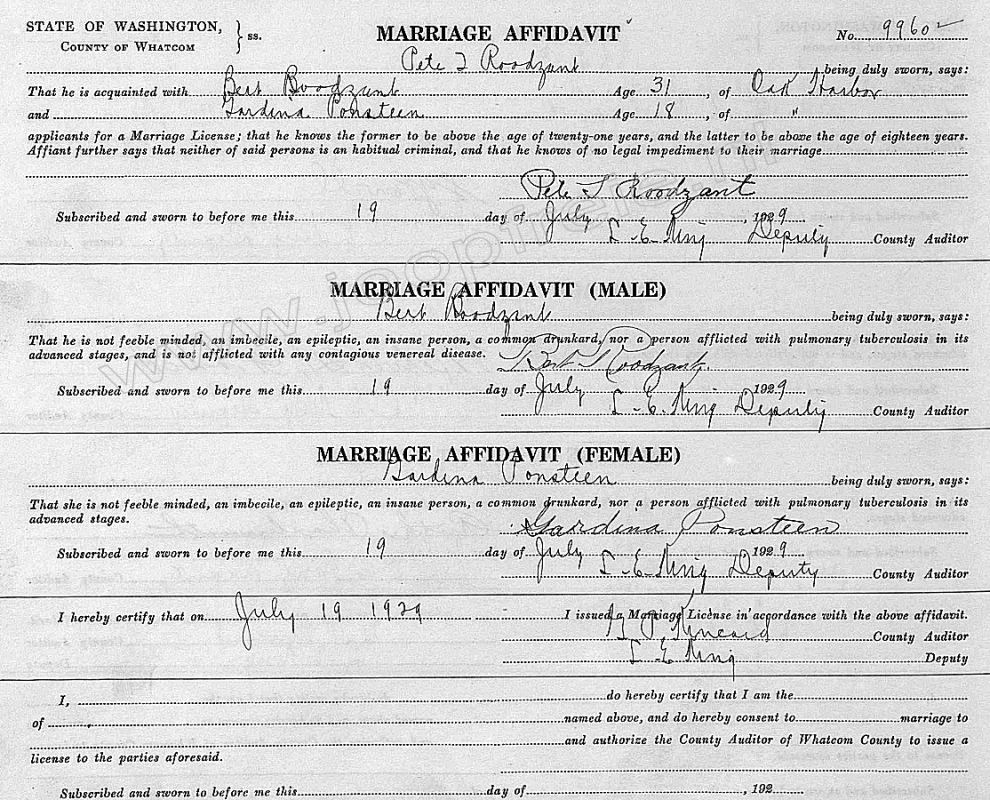 STATE OF WASHINGTON,
COUNTY OF WHATCOM
} ss.
MARRIAGE AFFIDAVIT
No. 9960
Pete T Roodzant being duly sworn, says:
That he is acquainted with Bert Roodzant Age 31, of Oak Harbor
and Gardina Ponsteen Age 18, of "
applicants for a Marriage License; that he knows the former to be above the age of twenty-one years, and the latter to be above the age of eighteen years.
Affiant further says that neither of said persons is an habitual criminal, and that he knows of no legal impediment to their marriage
Pete T Roodzant
Subscribed and sworn to before me this 19 day of July, 1929
L. E. King Deputy County Auditor
MARRIAGE AFFIDAVIT (MALE)
Bert Roodzant being duly sworn, says:
That he is not feeble minded, an imbecile, an epileptic, an insane person, a common drunkard, nor a person afflicted with pulmonary tuberculosis in its
advanced stages, and is not afflicted with any contagious venereal disease.
Bert Roodzant.
Subscribed and sworn to before me this 19 day of July, 1929
L. E. King Deputy County Auditor
MARRIAGE AFFIDAVIT (FEMALE)
Gardina Ponsteen being duly sworn, says:
That she is not feeble minded, an imbecile, an epileptic, an insane person, a common drunkard, nor a person afflicted with pulmonary tuberculosis in its
advanced stages.
Gardina Ponsteen
Subscribed and sworn to before me this 19 day of July, 1929
L. E. King Deputy County Auditor
I hereby certify that on July 19 1929 I issued a Marriage License in accordance with the above affidavit.
County Auditor
L. E. King Deputy
I, do hereby certify that I am the
of named above, and do hereby consent to marriage to
and authorize the County Auditor of Whatcom County to issue a
license to the parties aforesaid.
Subscribed and sworn to before me this day of, 192